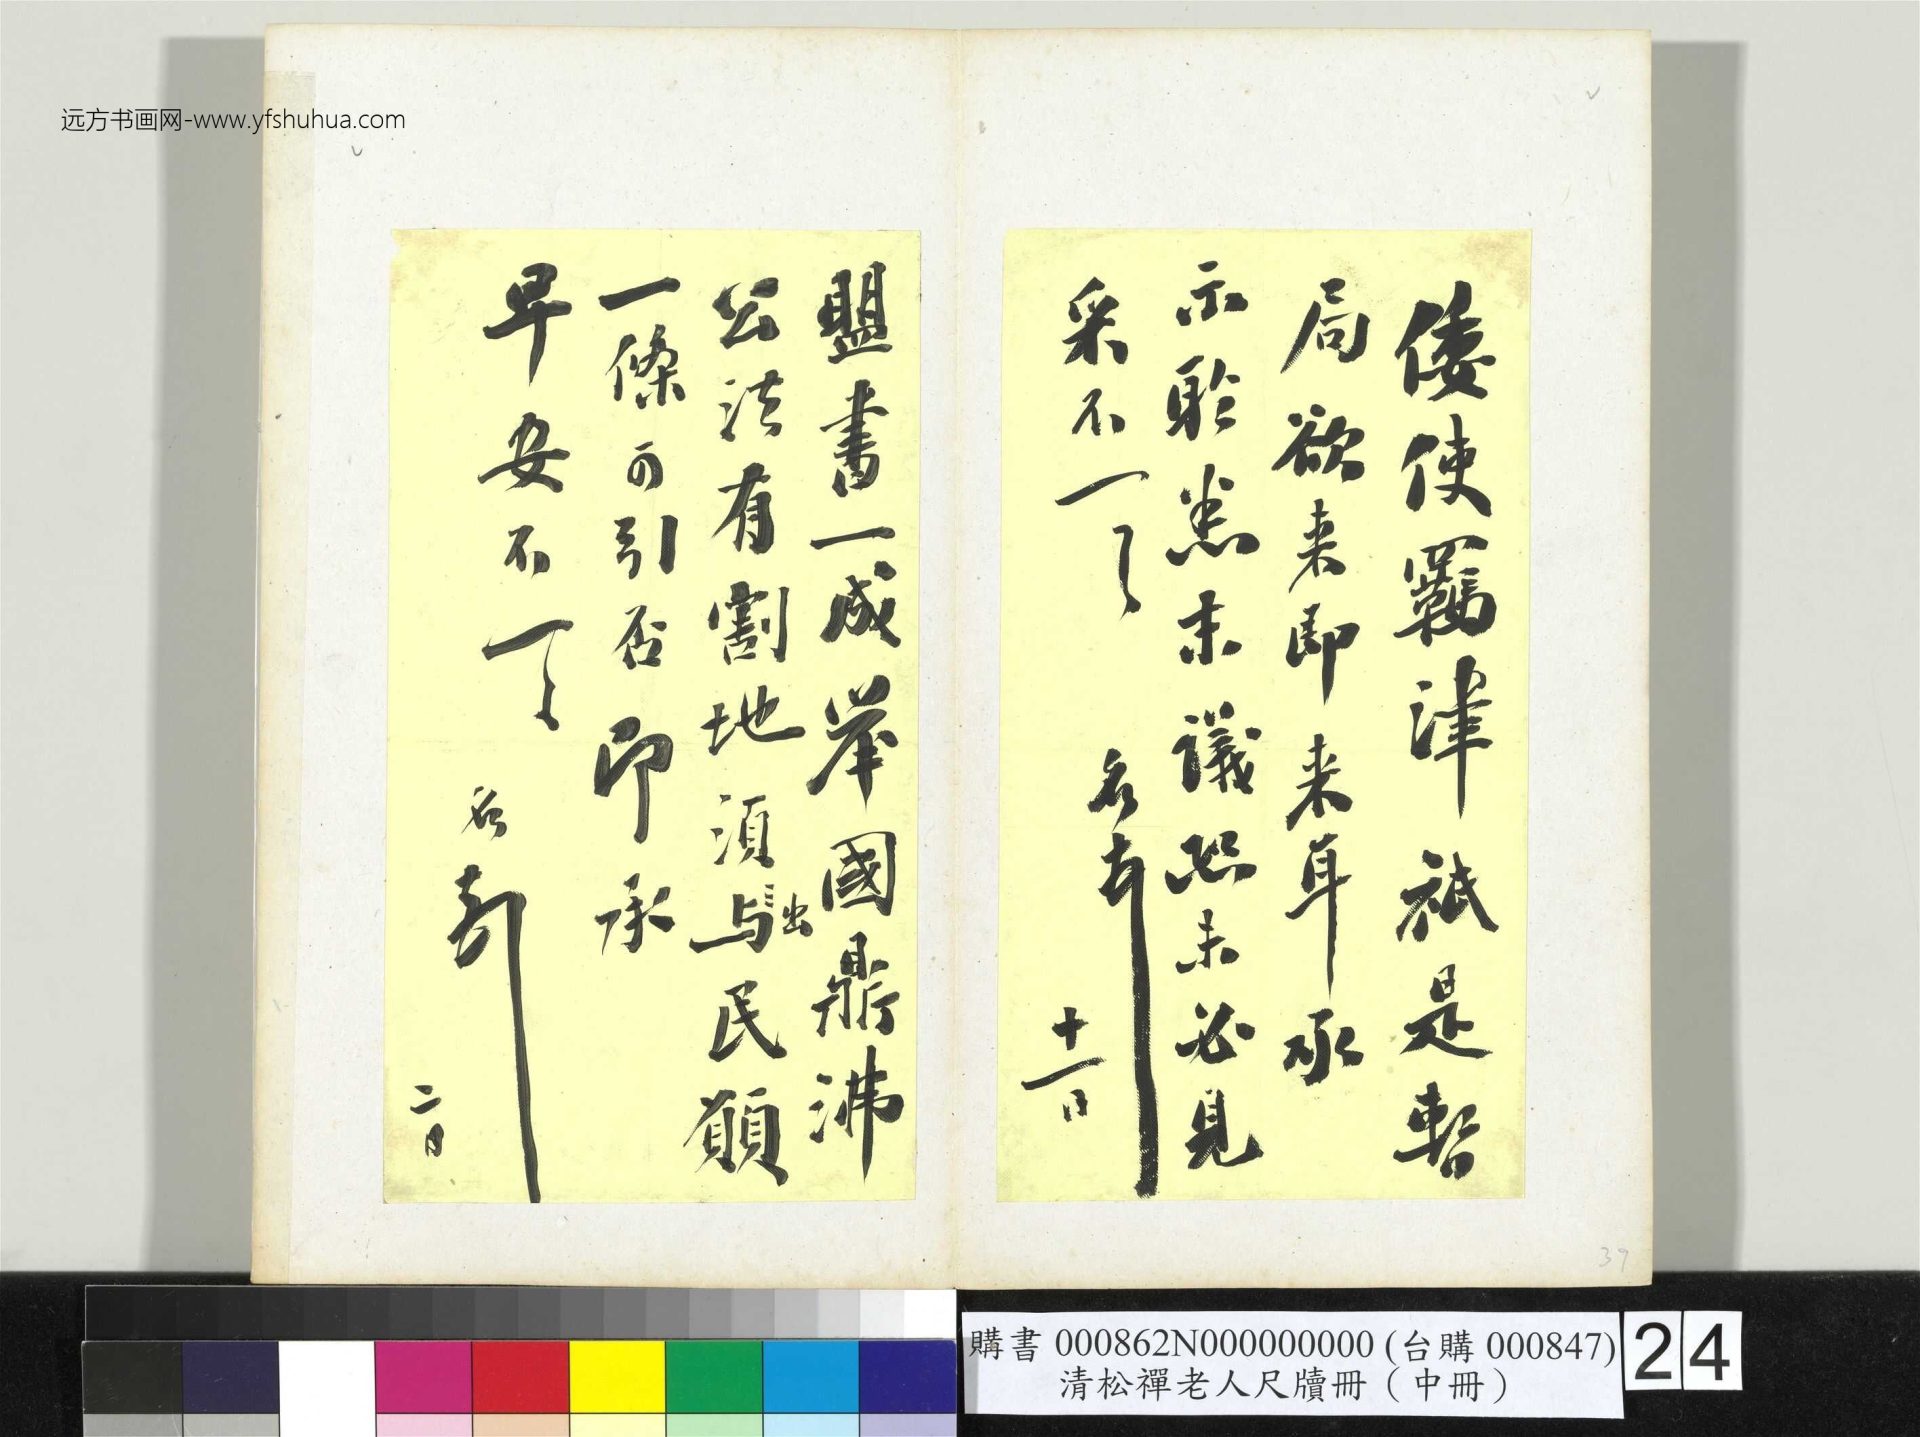 远方书画网-www.yfshuhua.com
倭使羈津祇是暫
局欲来即来耳承
示聆悉末議恐未必見
采不一一
名
十一日
盟書一成舉國鼎沸
公法有割地須与出民願
一條可引否即承
早安不一一
名
二日
39
購書 000862N000000000 (台購 000847)
清松禪老人尺牘冊（中冊）
24